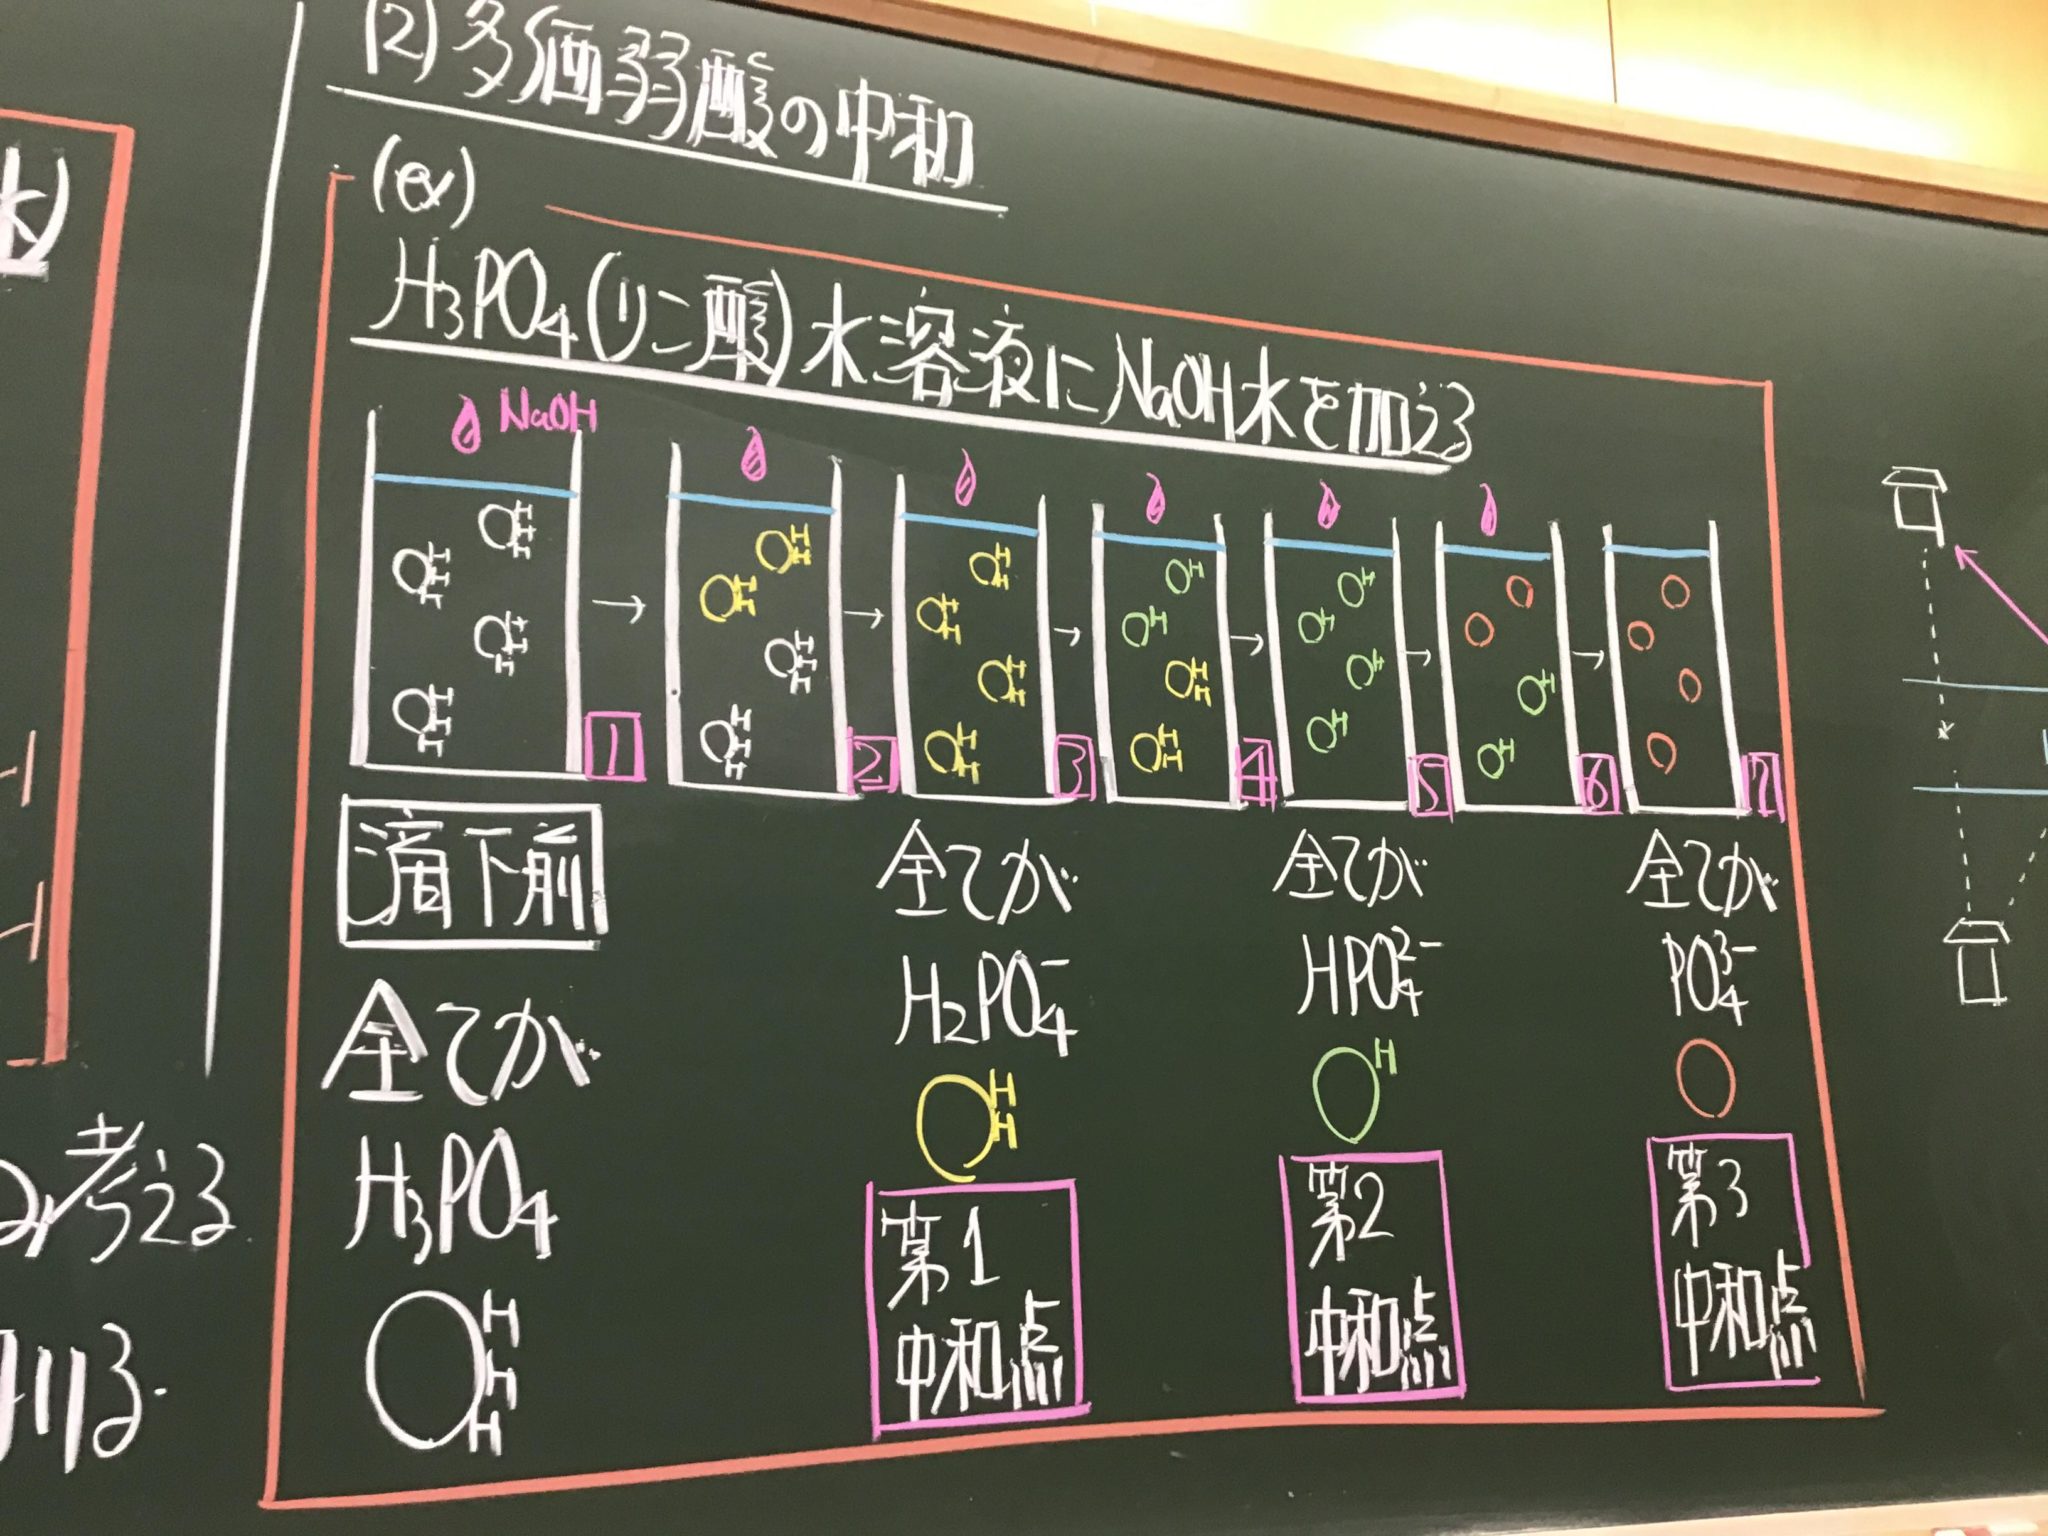 (2)多価弱酸の中和
(ex)
H₃PO₄(リン酸)水溶液にNaOH水を加える
NaOH
1 2 3 4 5 6 7
滴下前
全てが
H₃PO₄
H
H
H
全てが
H₂PO₄⁻
H
H
第1
中和点
全てが
HPO₄²⁻
H
第2
中和点
全てが
PO₄³⁻
第3
中和点
水)
考える